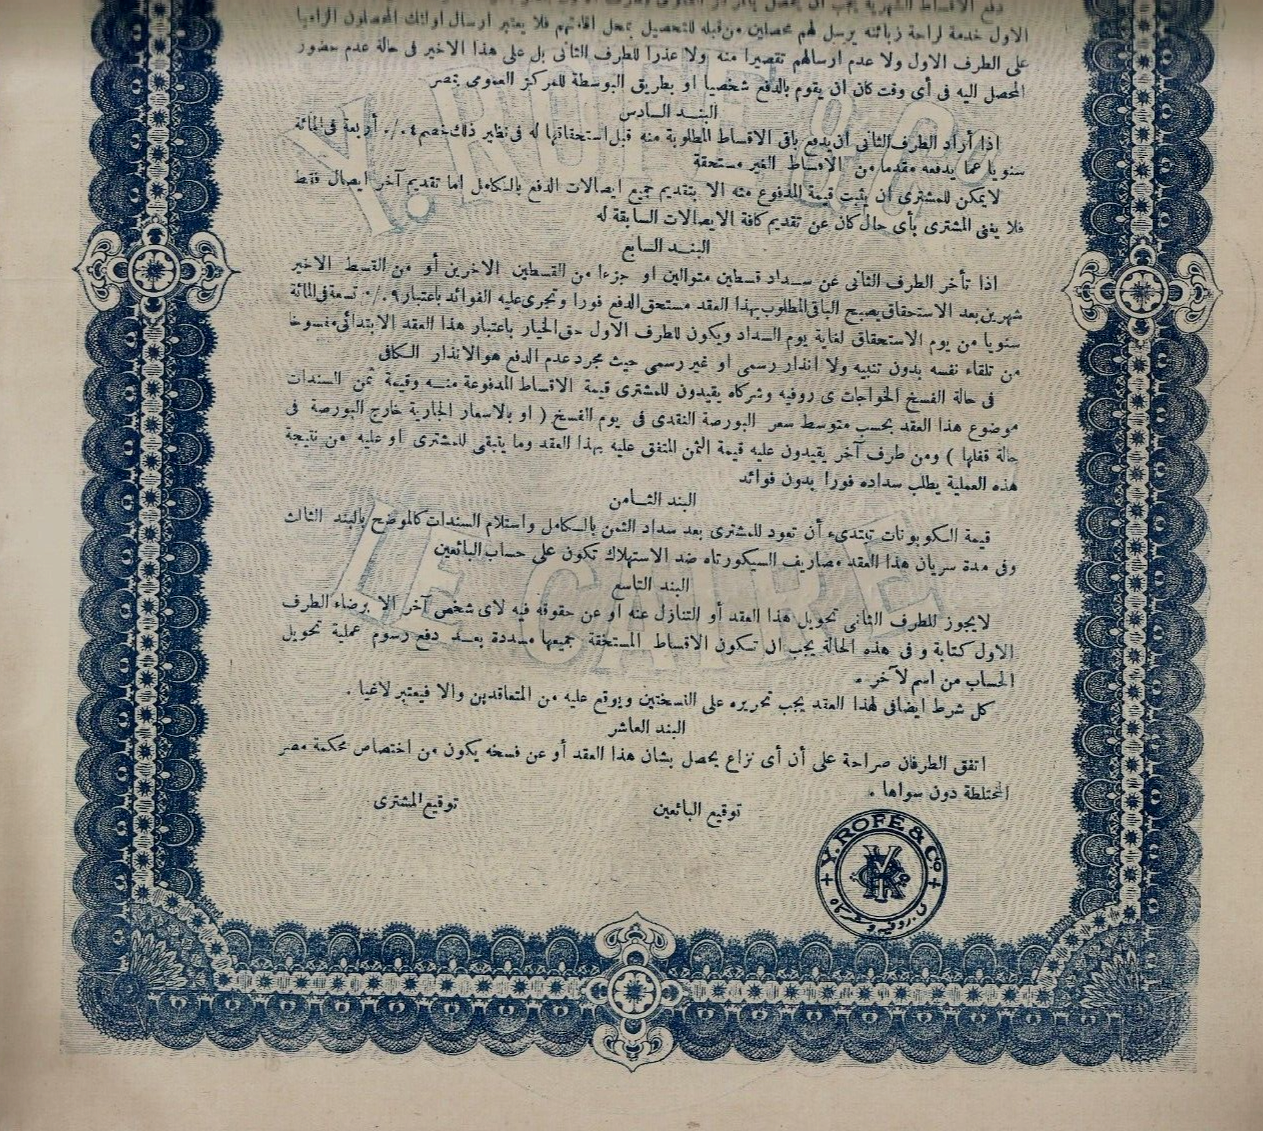 الاول خدمة لراحة زبائنه يرسل لهم محصلين من قبله للتحصيل بمحل اقامتهم فلا يعتبر ارسال اولئك المحصلون الزاميا
على الطرف الاول ولا عدم ارسالهم تقصيرا منه ولا عذرا للطرف الثانى بل على هذا الاخير فى حالة عدم حضور
المحصل اليه فى أى وقت كان ان يقوم بالدفع شخصيا او بطريق البوسطة للمركز العمومى بمصر
البنـد السادس
اذا أراد الطرف الثانى ان يدفع باقى الاقساط المطلوبة منه قبل استحقاقها له فى نظير ذلك خصم ٤ ٠/٠ أربعة فى المائة
سنويا عما يدفعه مقدما من الاقساط الغير مستحقة
لا يمكن للمشترى ان يثبت قيمة المدفوع منه الا بتقديم جميع ايصالات الدفع بالكامل اما تقديم آخر ايصال فقط
فلا يغنى المشترى بأى حال كان عن تقديم كافة الايصالات السابقة له
البنـد السابع
اذا تأخر الطرف الثانى عن سـداد قسطين متوالين او جزءا من القسطين الاخرين أو من القسط الاخير
شهرين بعد الاستحقاق يصبح الباقى المطلوب بهذا العقد مستحق الدفع فورا وتجرى عليه الفوائد باعتبار ٩ ٠/٠ تسعة فى المائة
سنويا من يوم الاستحقاق لغاية يوم السداد ويكون للطرف الاول حق الخيار باعتبار هذا العقد الابتدائى مفسوخا
من تلقاء نفسه بدون تنبيه ولا انذار رسمى او غير رسمى حيث مجرد عدم الدفع هو الانذار الكافى
فى حالة الفسخ الخواجات ى روفيه وشركاه يقيدون للمشترى قيمة الاقساط المدفوعة منـه وقيمة ثمن السندات
موضوع هذا العقد بحسب متوسط سعر البورصة النقدى فى يوم الفسخ ( او بالاسعار الجارية خارج البورصة فى
حالة قفلها ) ومن طرف آخر يقيدون عليه قيمة الثمن المتفق عليه بهذا العقد وما يتبقى للمشترى او عليه من نتيجة
هذه العملية يطلب سداده فورا بدون فوائد
البند الثـامن
قيمة الكوبونات تبتدىء أن تعود للمشترى بعد سداد الثمن بالكامل واستلام السندات كالموضح بالبند الثالث
وفى مدة سريان هذا العقد مصاريف السيكورتاه ضد الاستهلاك تكون على حساب البائعين
البند التاسع
لا يجوز للطرف الثانى تحويل هذا العقد أو التنازل عنه او عن حقوقه فيه لاى شخص آخر الا برضاء الطرف
الاول كتابة و فى هذه الحالة يجب ان تكون الاقساط المستحقة جميعها مسددة بعـد دفع رسوم عملية تحويل
الحساب من اسم لآخر .
كل شرط ايضافى لهذا العقد يجب تحريره على النسختين ويوقع عليه من المتعاقدين والا فيعتبر لاغيا .
البند العاشر
اتفق الطرفان صراحة على أن أى نزاع يحصل بشان هذا العقد أو عن فسخه يكون من اختصاص محكمة مصر
المختلطة دون سواها .
توقيع البائعين
توقيع المشترى
Y. ROFÉ & Co
ى. روفيه وشركاه
LE CAIRE